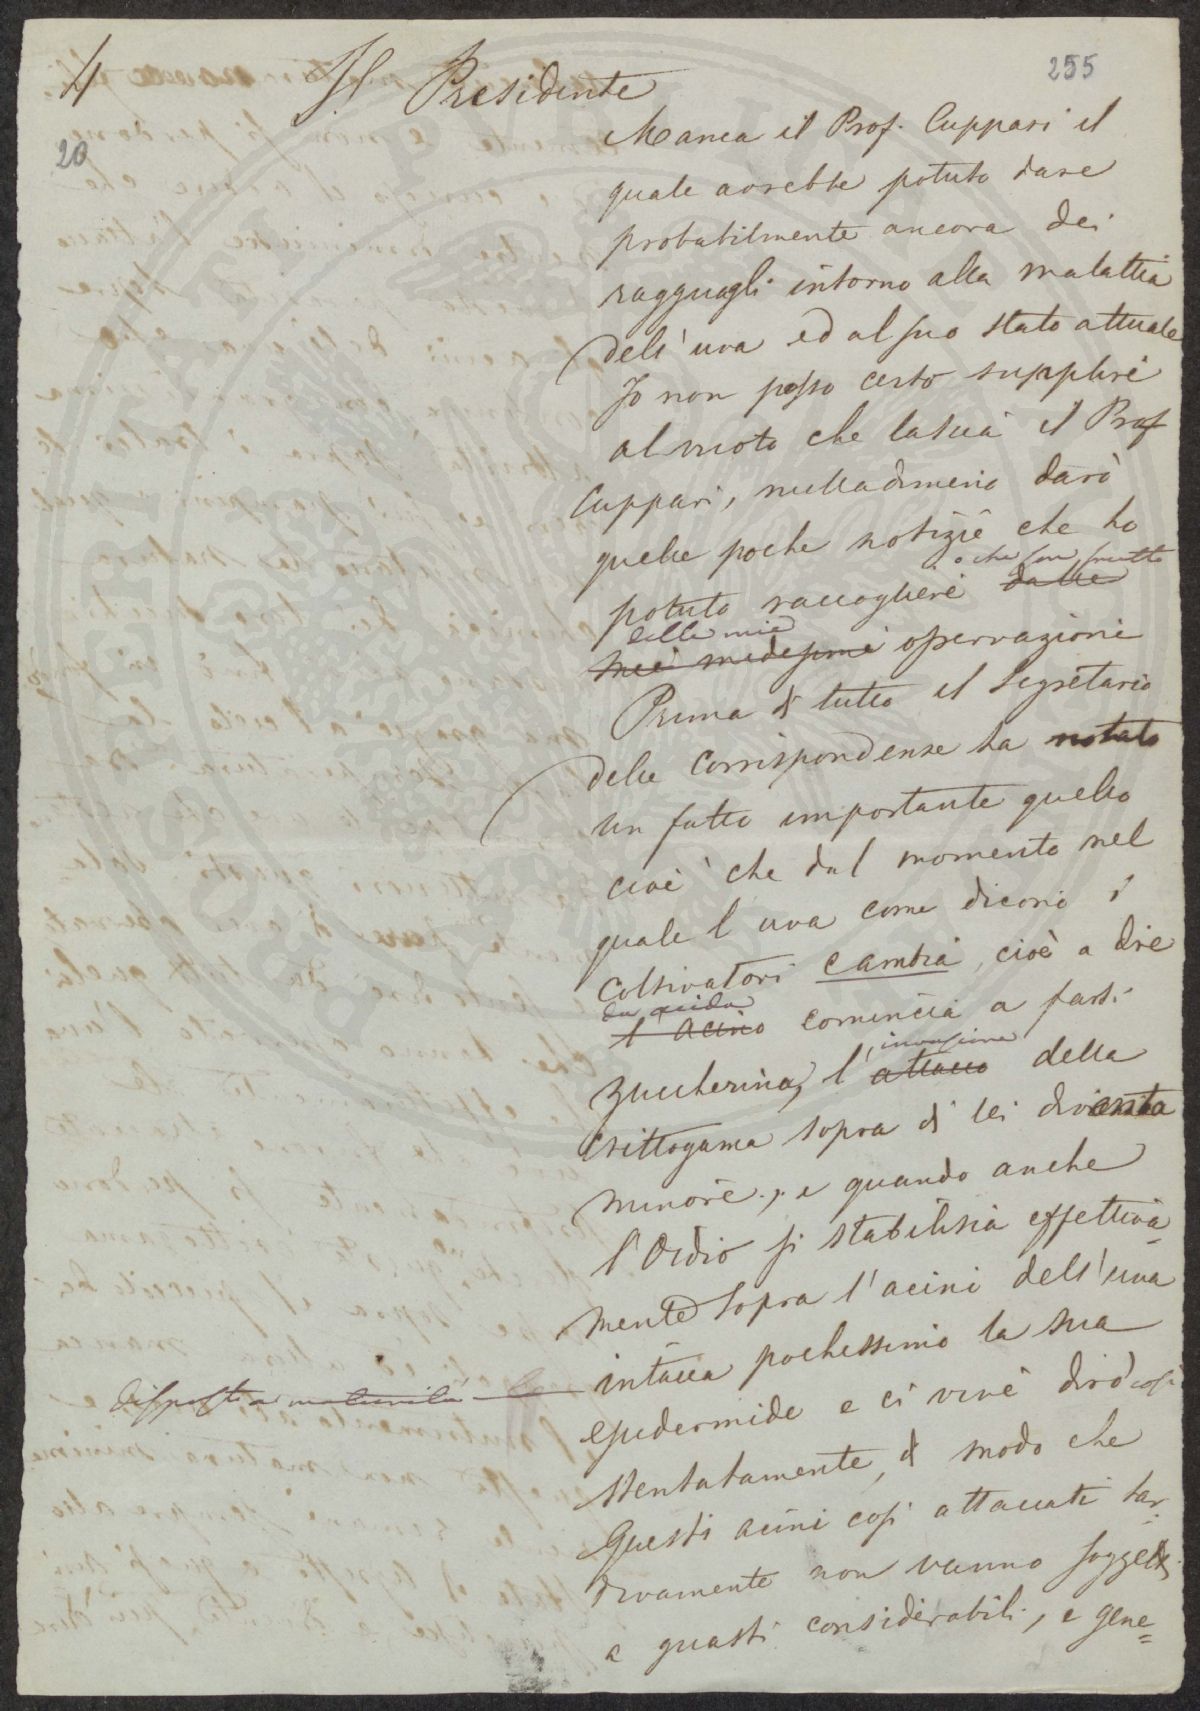 4 Il Presidente 255
20
Manca il Prof. Cuppari il
quale avrebbe potuto dare
probabilmente ancora dei
ragguagli intorno alla malattia
dell'uva ed al suo stato attuale
Io non posso certo supplire
al vuoto che lascia il Prof
Cuppari, nulladimeno darò
quelle poche notizie che ho
o che son frutto
potuto raccogliere dalle
delle mie
mie medesime osservazioni
Prima di tutto il Segretario
delle Corrispondenze ha notato
un fatto importante quello
cioè che dal momento nel
quale l uva come dicono i
coltivatori cambia, cioè a dire
da acida
l acino comincia a farsi
invasione
zuccherina, l'attacco della
crittogama sopra di lei diventa
minore, e quando anche
l'Oidio si stabilisca effettiva=
mente sopra l'acini dell'uva
intacca pochissimo la sua
disposta maturità
epidermide e ci vive dirò così
stentatamente, di modo che
questi acini così attaccati tar=
divamente non vanno soggetti
a guasti considerabili, e gene=